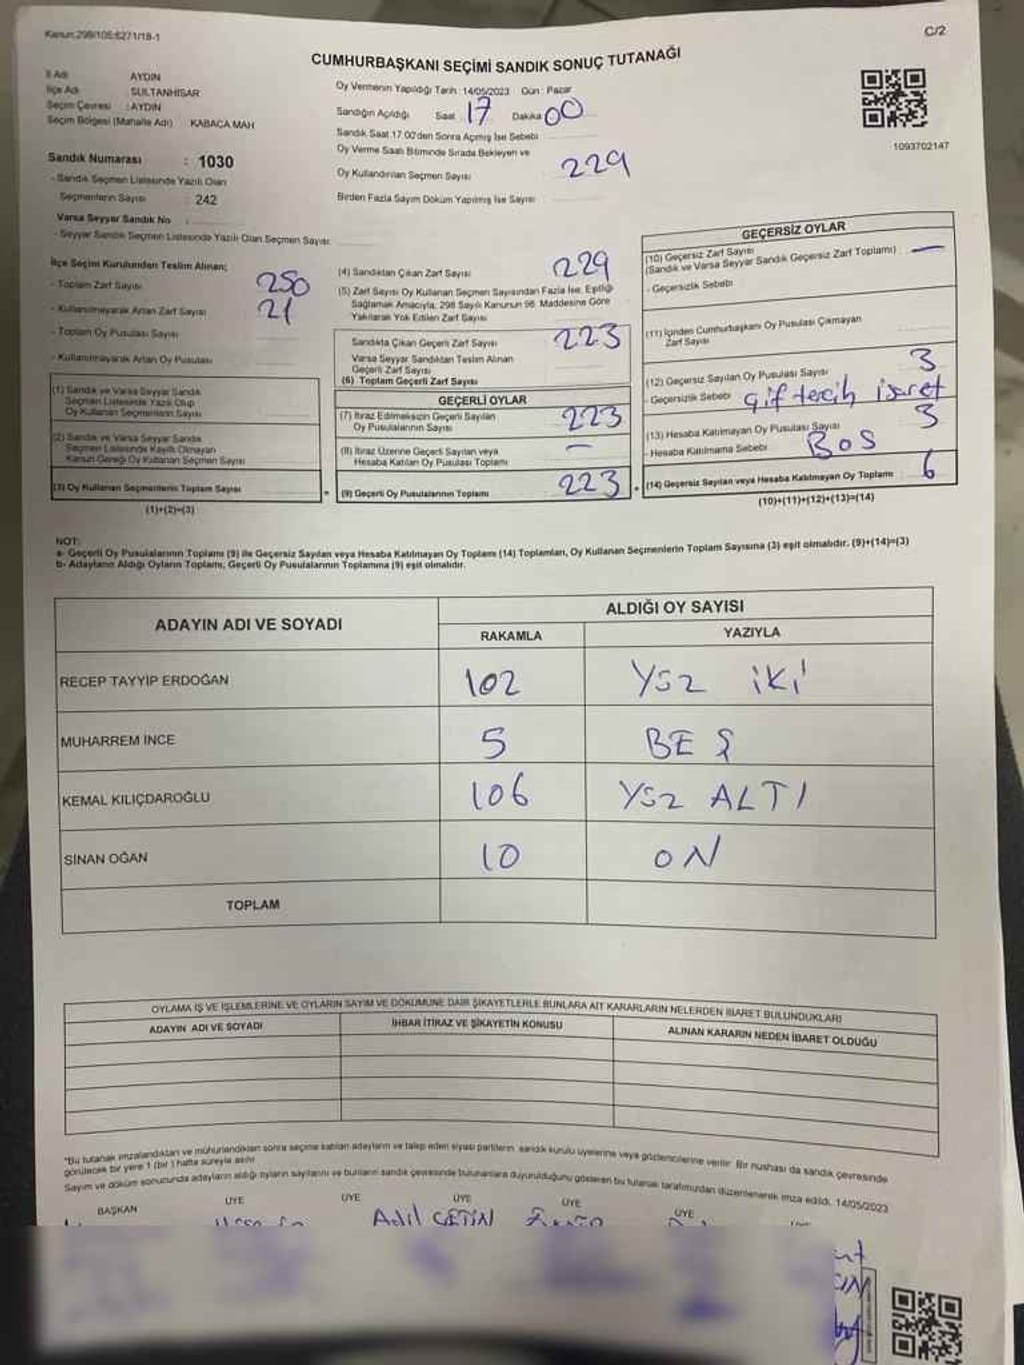 Kanun:298/105:6271/18-1
C/2
CUMHURBAŞKANI SEÇİMİ SANDIK SONUÇ TUTANAĞI
İl Adı AYDIN
İlçe Adı SULTANHİSAR
Seçim Çevresi : AYDIN
Seçim Bölgesi (Mahalle Adı) KABACA MAH
Sandık Numarası : 1030
- Sandık Seçmen Listesinde Yazılı Olan
Seçmenlerin Sayısı : 242
Varsa Seyyar Sandık No :
- Seyyar Sandık Seçmen Listesinde Yazılı Olan Seçmen Sayısı
Oy Vermenin Yapıldığı Tarih : 14/05/2023 Gün : Pazar
Sandığın Açıldığı Saat 17 Dakika 00
Sandık Saat 17.00'den Sonra Açmış İse Sebebi
Oy Verme Saati Bitiminde Sırada Bekleyen ve
Oy Kullandırılan Seçmen Sayısı 229
Birden Fazla Sayım Döküm Yapılmış İse Sayısı
1093702147
İlçe Seçim Kurulundan Teslim Alınan;
- Toplam Zarf Sayısı 250
- Kullanılmayarak Artan Zarf Sayısı 21
- Toplam Oy Pusulası Sayısı
- Kullanılmayarak Artan Oy Pusulası
(1) Sandık ve Varsa Seyyar Sandık
Seçmen Listesinde Yazılı Olup
Oy Kullanan Seçmenlerin Sayısı
(2) Sandık ve Varsa Seyyar Sandık
Seçmen Listesinde Kayıtlı Olmayan
Kanun Gereği Oy Kullanan Seçmen Sayısı
(3) Oy Kullanan Seçmenlerin Toplam Sayısı
(1)+(2)=(3)
(4) Sandıktan Çıkan Zarf Sayısı 229
(5) Zarf Sayısı Oy Kullanan Seçmen Sayısından Fazla İse, Eşitliği
Sağlamak Amacıyla, 298 Sayılı Kanunun 98. Maddesine Göre
Yakılarak Yok Edilen Zarf Sayısı
Sandıkta Çıkan Geçerli Zarf Sayısı 223
Varsa Seyyar Sandıktan Teslim Alınan
Geçerli Zarf Sayısı
(6) Toplam Geçerli Zarf Sayısı
GEÇERLİ OYLAR
(7) İtiraz Edilmeksizin Geçerli Sayılan
Oy Pusulalarının Sayısı 223
(8) İtiraz Üzerine Geçerli Sayılan veya
Hesaba Katılan Oy Pusulası Toplamı —
= (9) Geçerli Oy Pusulalarının Toplamı 223 +
GEÇERSİZ OYLAR
(10) Geçersiz Zarf Sayısı
(Sandık ve Varsa Seyyar Sandık Geçersiz Zarf Toplamı) —
- Geçersizlik Sebebi
(11) İçinden Cumhurbaşkanı Oy Pusulası Çıkmayan
Zarf Sayısı
(12) Geçersiz Sayılan Oy Pusulası Sayısı 3
- Geçersizlik Sebebi çift tercih işaret
(13) Hesaba Katılmayan Oy Pusulası Sayısı 3
- Hesaba Katılmama Sebebi BOS
(14) Geçersiz Sayılan veya Hesaba Katılmayan Oy Toplamı 6
(10)+(11)+(12)+(13)=(14)
NOT:
a- Geçerli Oy Pusulalarının Toplamı (9) ile Geçersiz Sayılan veya Hesaba Katılmayan Oy Toplamı (14) Toplamları, Oy Kullanan Seçmenlerin Toplam Sayısına (3) eşit olmalıdır. (9)+(14)=(3)
b- Adayların Aldığı Oyların Toplamı, Geçerli Oy Pusulalarının Toplamına (9) eşit olmalıdır.
ADAYIN ADI VE SOYADI
ALDIĞI OY SAYISI
RAKAMLA YAZIYLA
RECEP TAYYİP ERDOĞAN 102 YSZ İKİ
MUHARREM İNCE 5 BEŞ
KEMAL KILIÇDAROĞLU 106 YSZ ALTI
SİNAN OĞAN 10 ON
TOPLAM
OYLAMA İŞ VE İŞLEMLERİNE VE OYLARIN SAYIM VE DÖKÜMÜNE DAİR ŞİKAYETLERLE BUNLARA AİT KARARLARIN NELERDEN İBARET BULUNDUKLARI
ADAYIN ADI VE SOYADI İHBAR İTİRAZ VE ŞİKAYETİN KONUSU ALINAN KARARIN NEDEN İBARET OLDUĞU
*Bu tutanak imzalandıktan ve mühürlendikten sonra seçime katılan adayların ve talep eden siyasi partilerin, sandık kurulu üyelerine veya gözlemcilerine verilir. Bir nüshası da sandık çevresinde
görülecek bir yere 1 (bir) hafta süreyle asılır.
Sayım ve döküm sonucunda adayların aldığı oyların sayılarını ve bunların sandık çevresinde bulunanlara duyurulduğunu gösteren bu tutanak tarafımızdan düzenlenerek imza edildi. 14/05/2023
BAŞKAN ÜYE ÜYE ÜYE ÜYE ÜYE
Adil ÇETİN